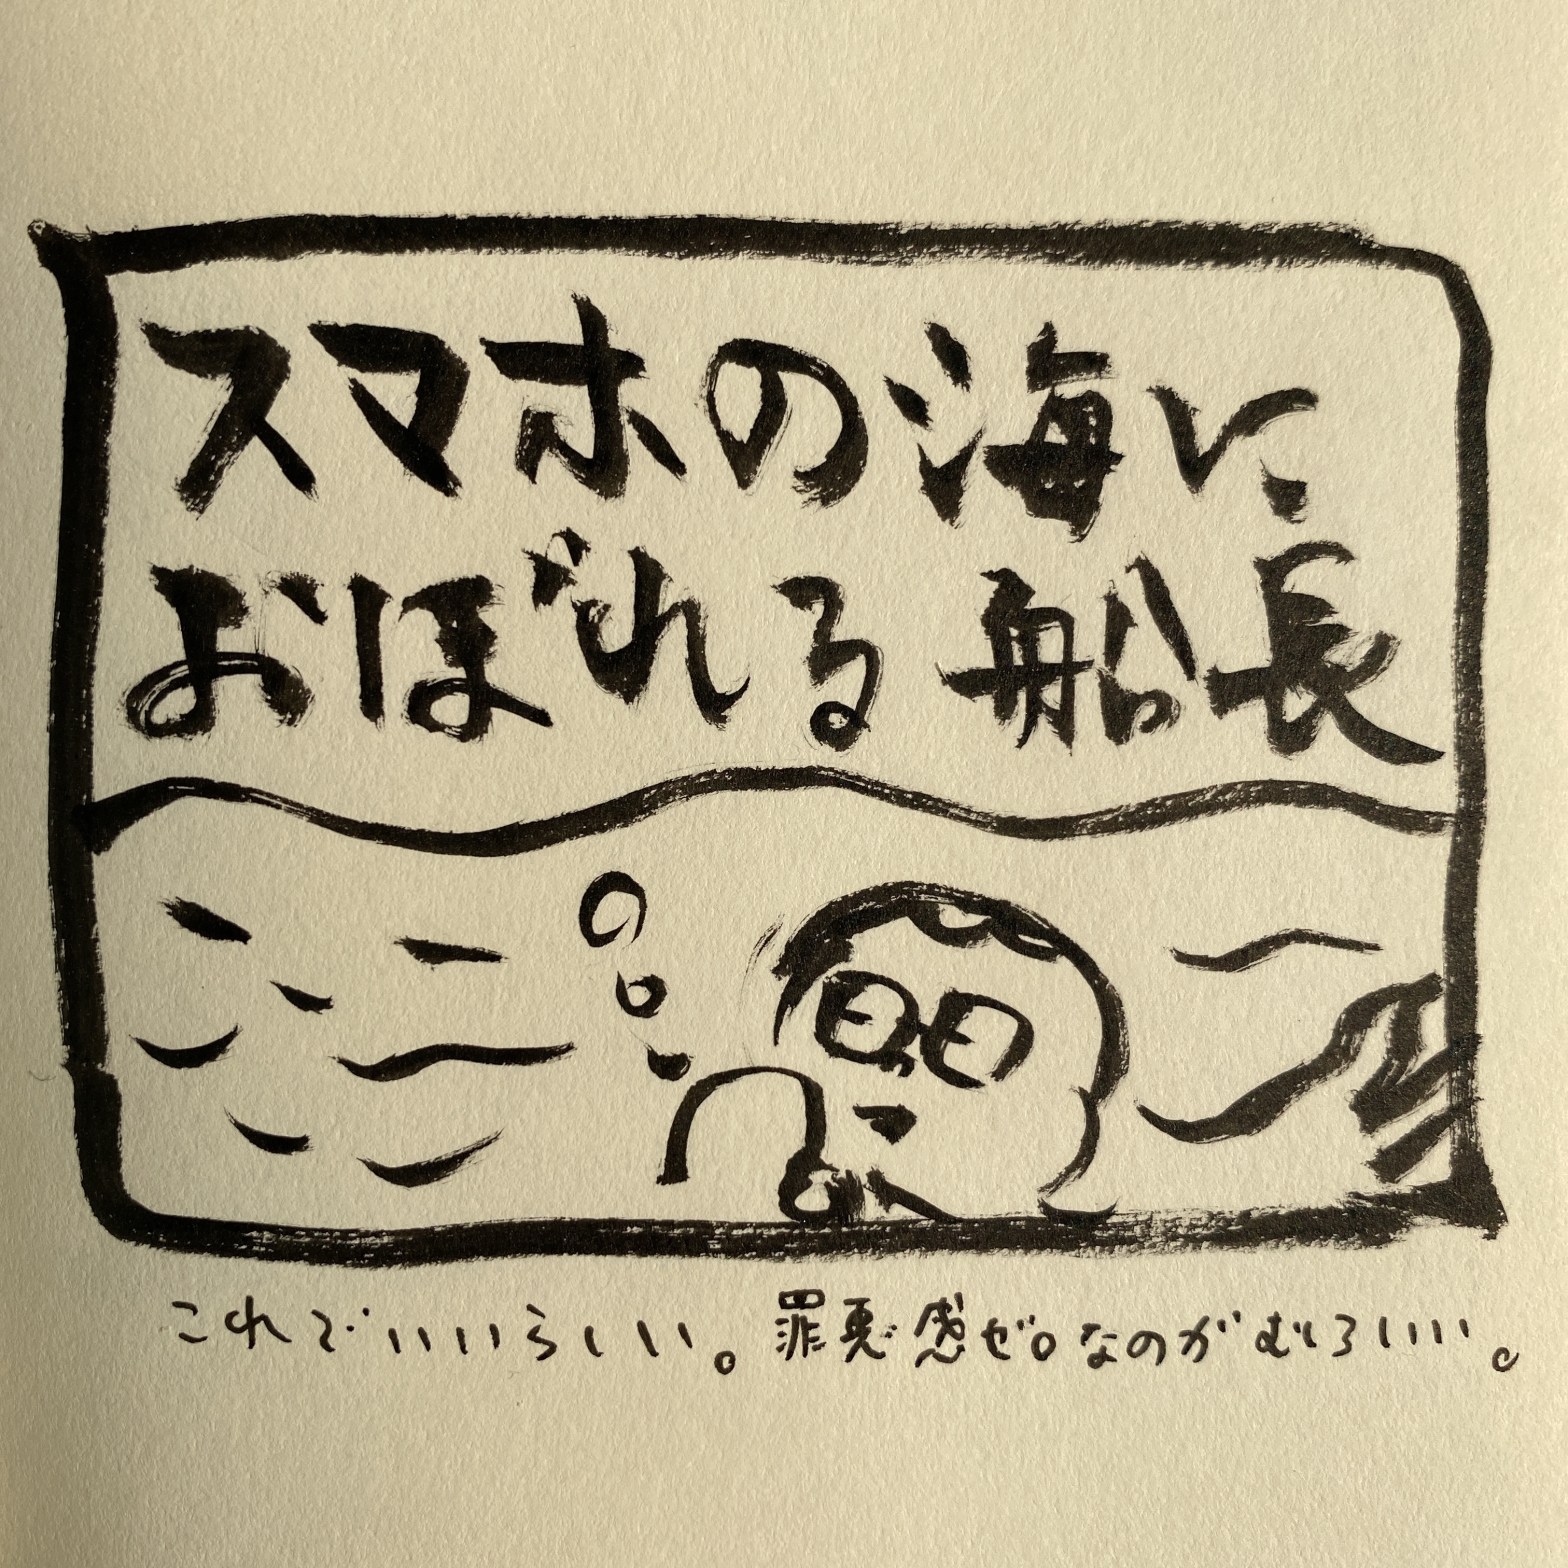 スマホの海に
おぼれる船長
これでいいらしい。罪悪感ゼロなのがむしろいい。